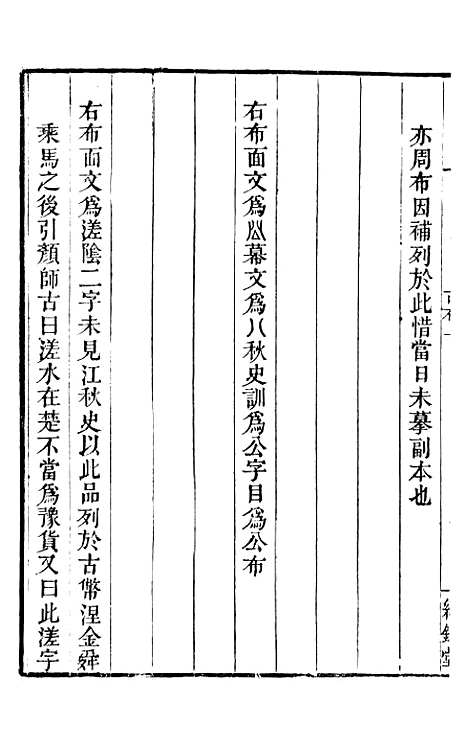 亦周布因補列於此惜當日未摹副本也
右布面文爲㕣幕文爲八秋史訓爲公字目爲公布
右布面文爲㳅陰二字未見江秋史以此品列於古幣涅金舜
乘馬之後引顏師古曰㳅水在楚不當爲豫貨又曰此㳅字